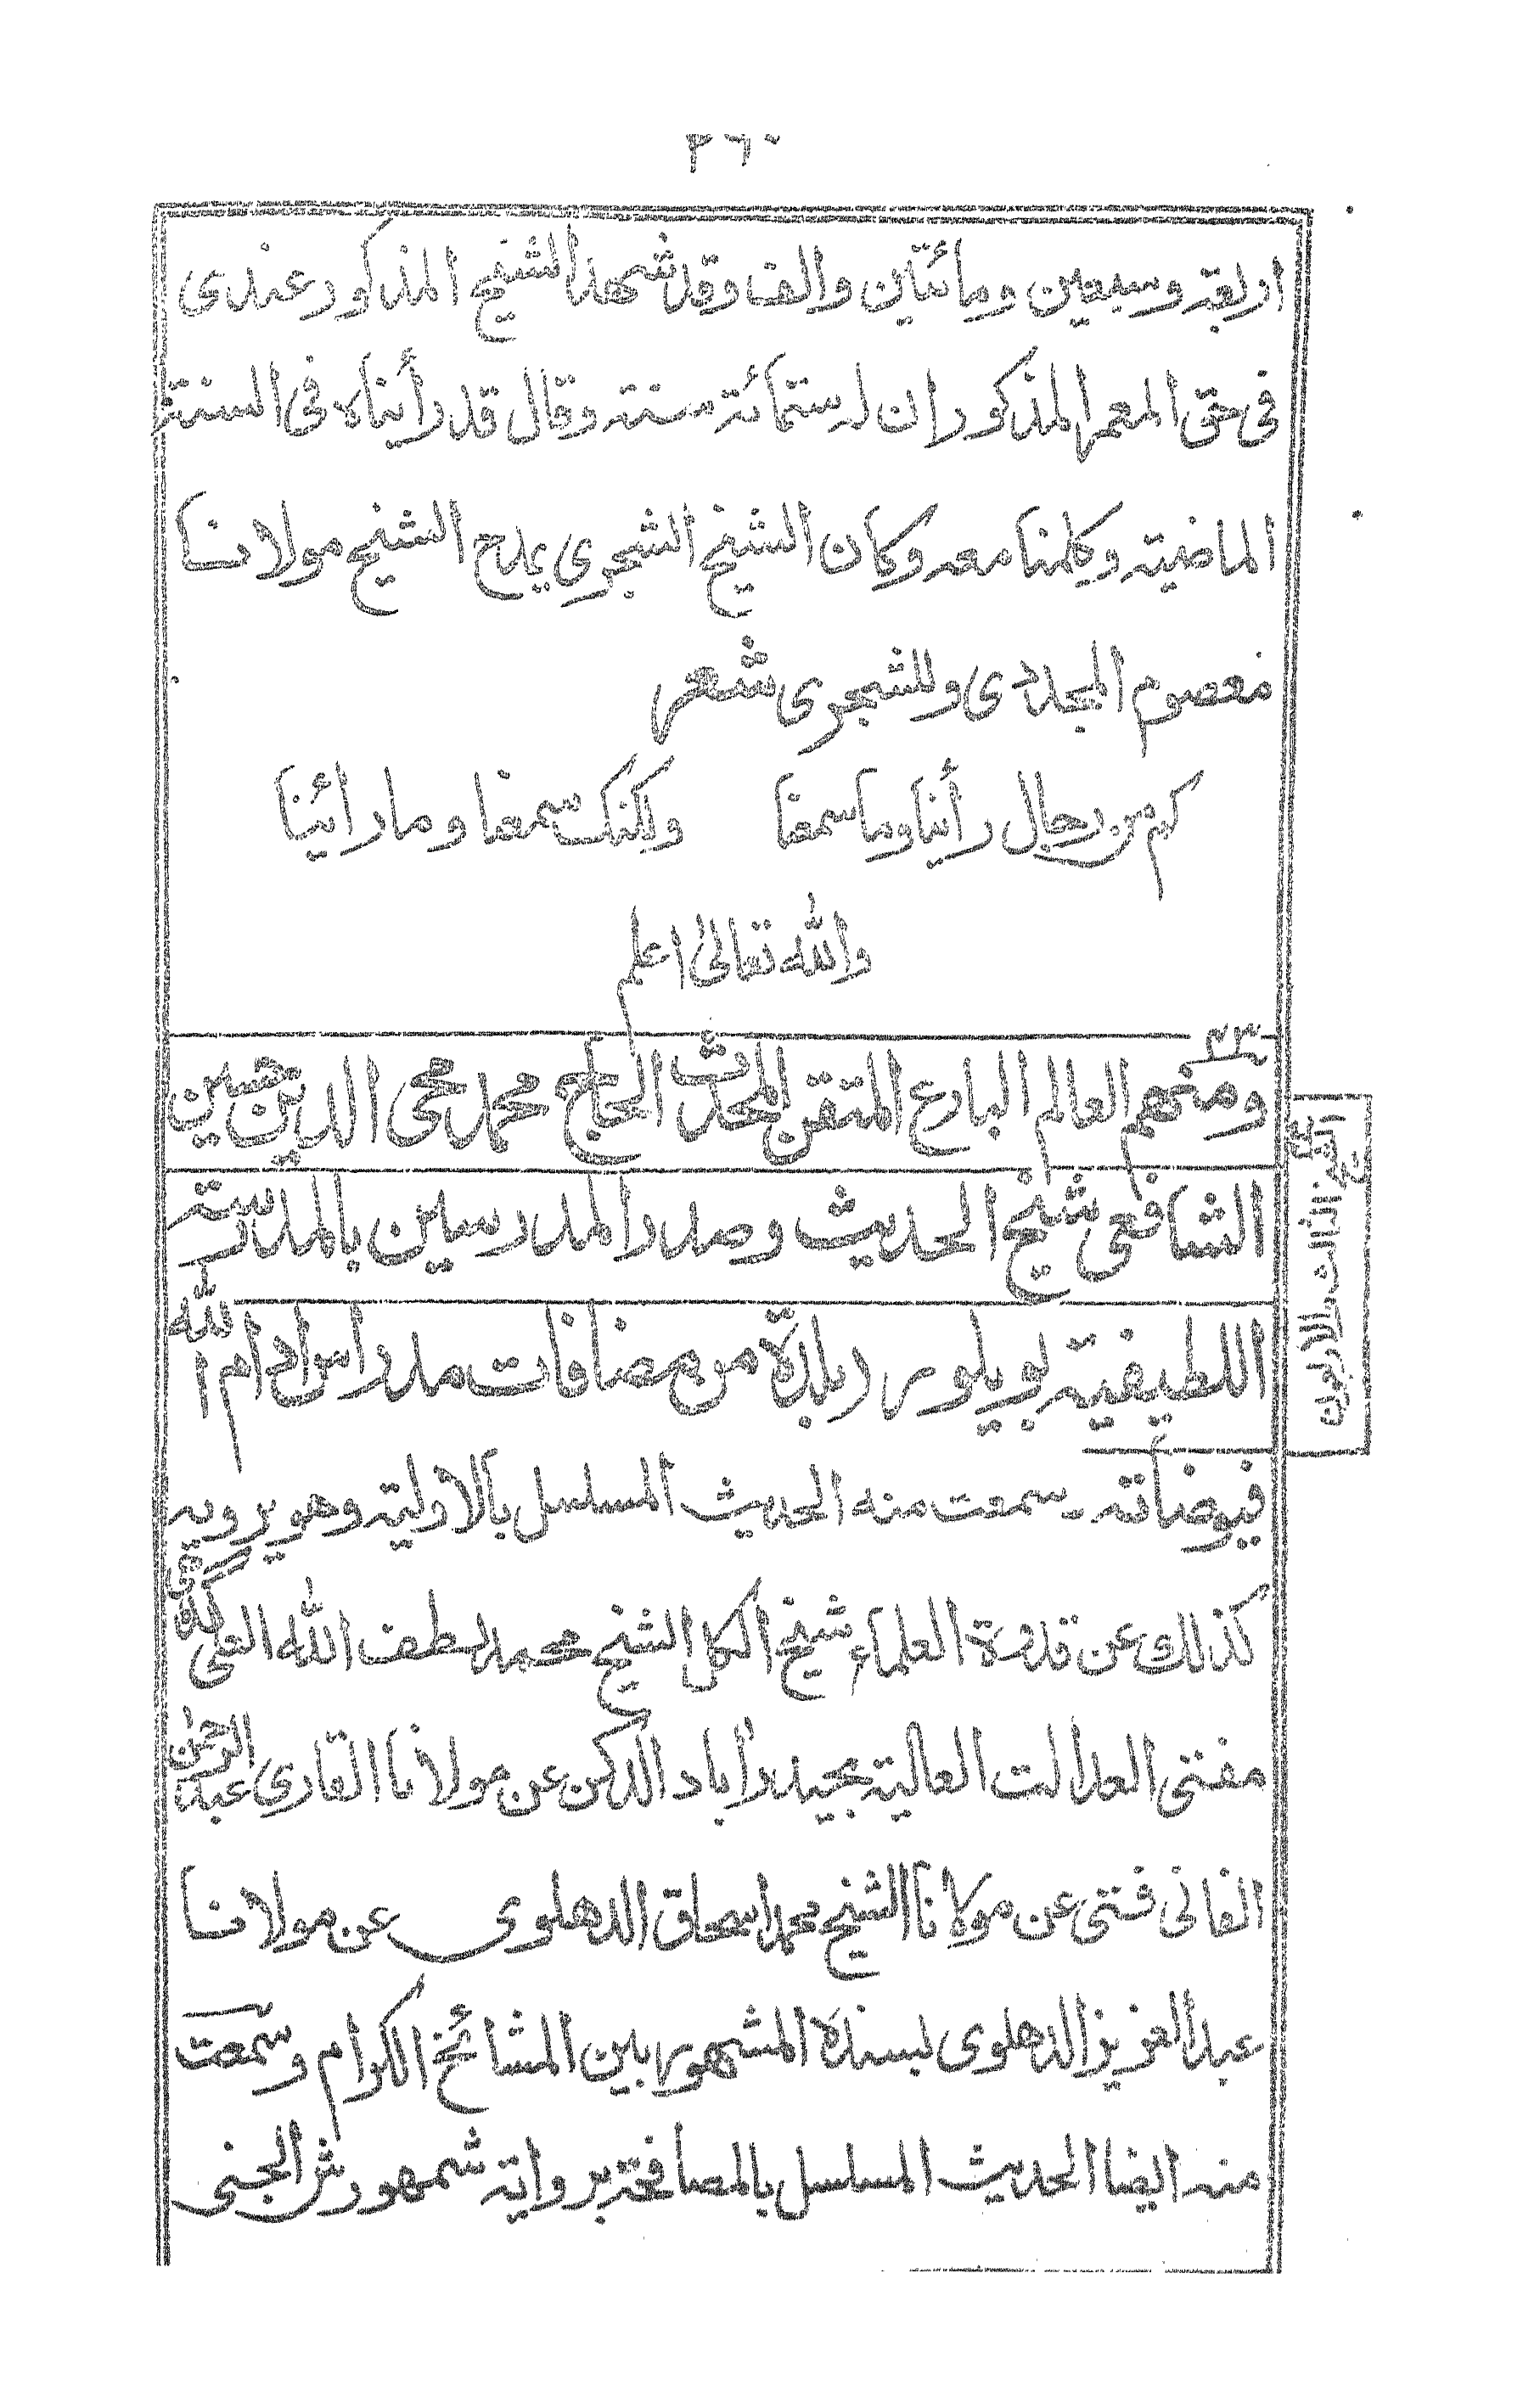 ٣٦٠
اربعة وسبعين ومائتين والف وقد شهد هذا الشيخ المذكور عندى
فى حق المعمر المذكور ان له ستمائة سنة وقال قد رأيناه فى السنة
الماضية وكلمنا معه وكان الشيخ الشجرى يمدح الشيخ مولانا
معصوم المجددى وللشجرى شعر
كم من رجال رأينا وما سمعنا ولكنك سمعنا وما رائينا
والله تعالىٰ اعلم
٤٣
ومنهم العالم البارع المتقن المحدث الحاج محمد محى الدين حسين
الشافعى شيخ الحديث وصدر المدرسين بالمدرسة
اللطيفية بويلور (بلدة من مضافات مدراس) ادام الله
الشيخ الثالث والاربعون
فيوضاته ـ سمعت منه الحديث المسلسل بالاولية وهو يرويه
كذلك عن قدوة العلماء شيخ الكل الشيخ محمد لطف الله العلى گدھى
مفتى العدالت العالية بحيدرآباد الدكن عن مولانا القارى عبد الرحمٰن
الفانى فتى عن مولانا الشيخ محمد اسحاق الدهلوى عن مولانا
عبد العزيز الدهلوى بسنده المشهور بين المشائخ الكرام وسمعت
منه ايضا الحديث المسلسل بالمصافحة برواية شمهورش الجنى